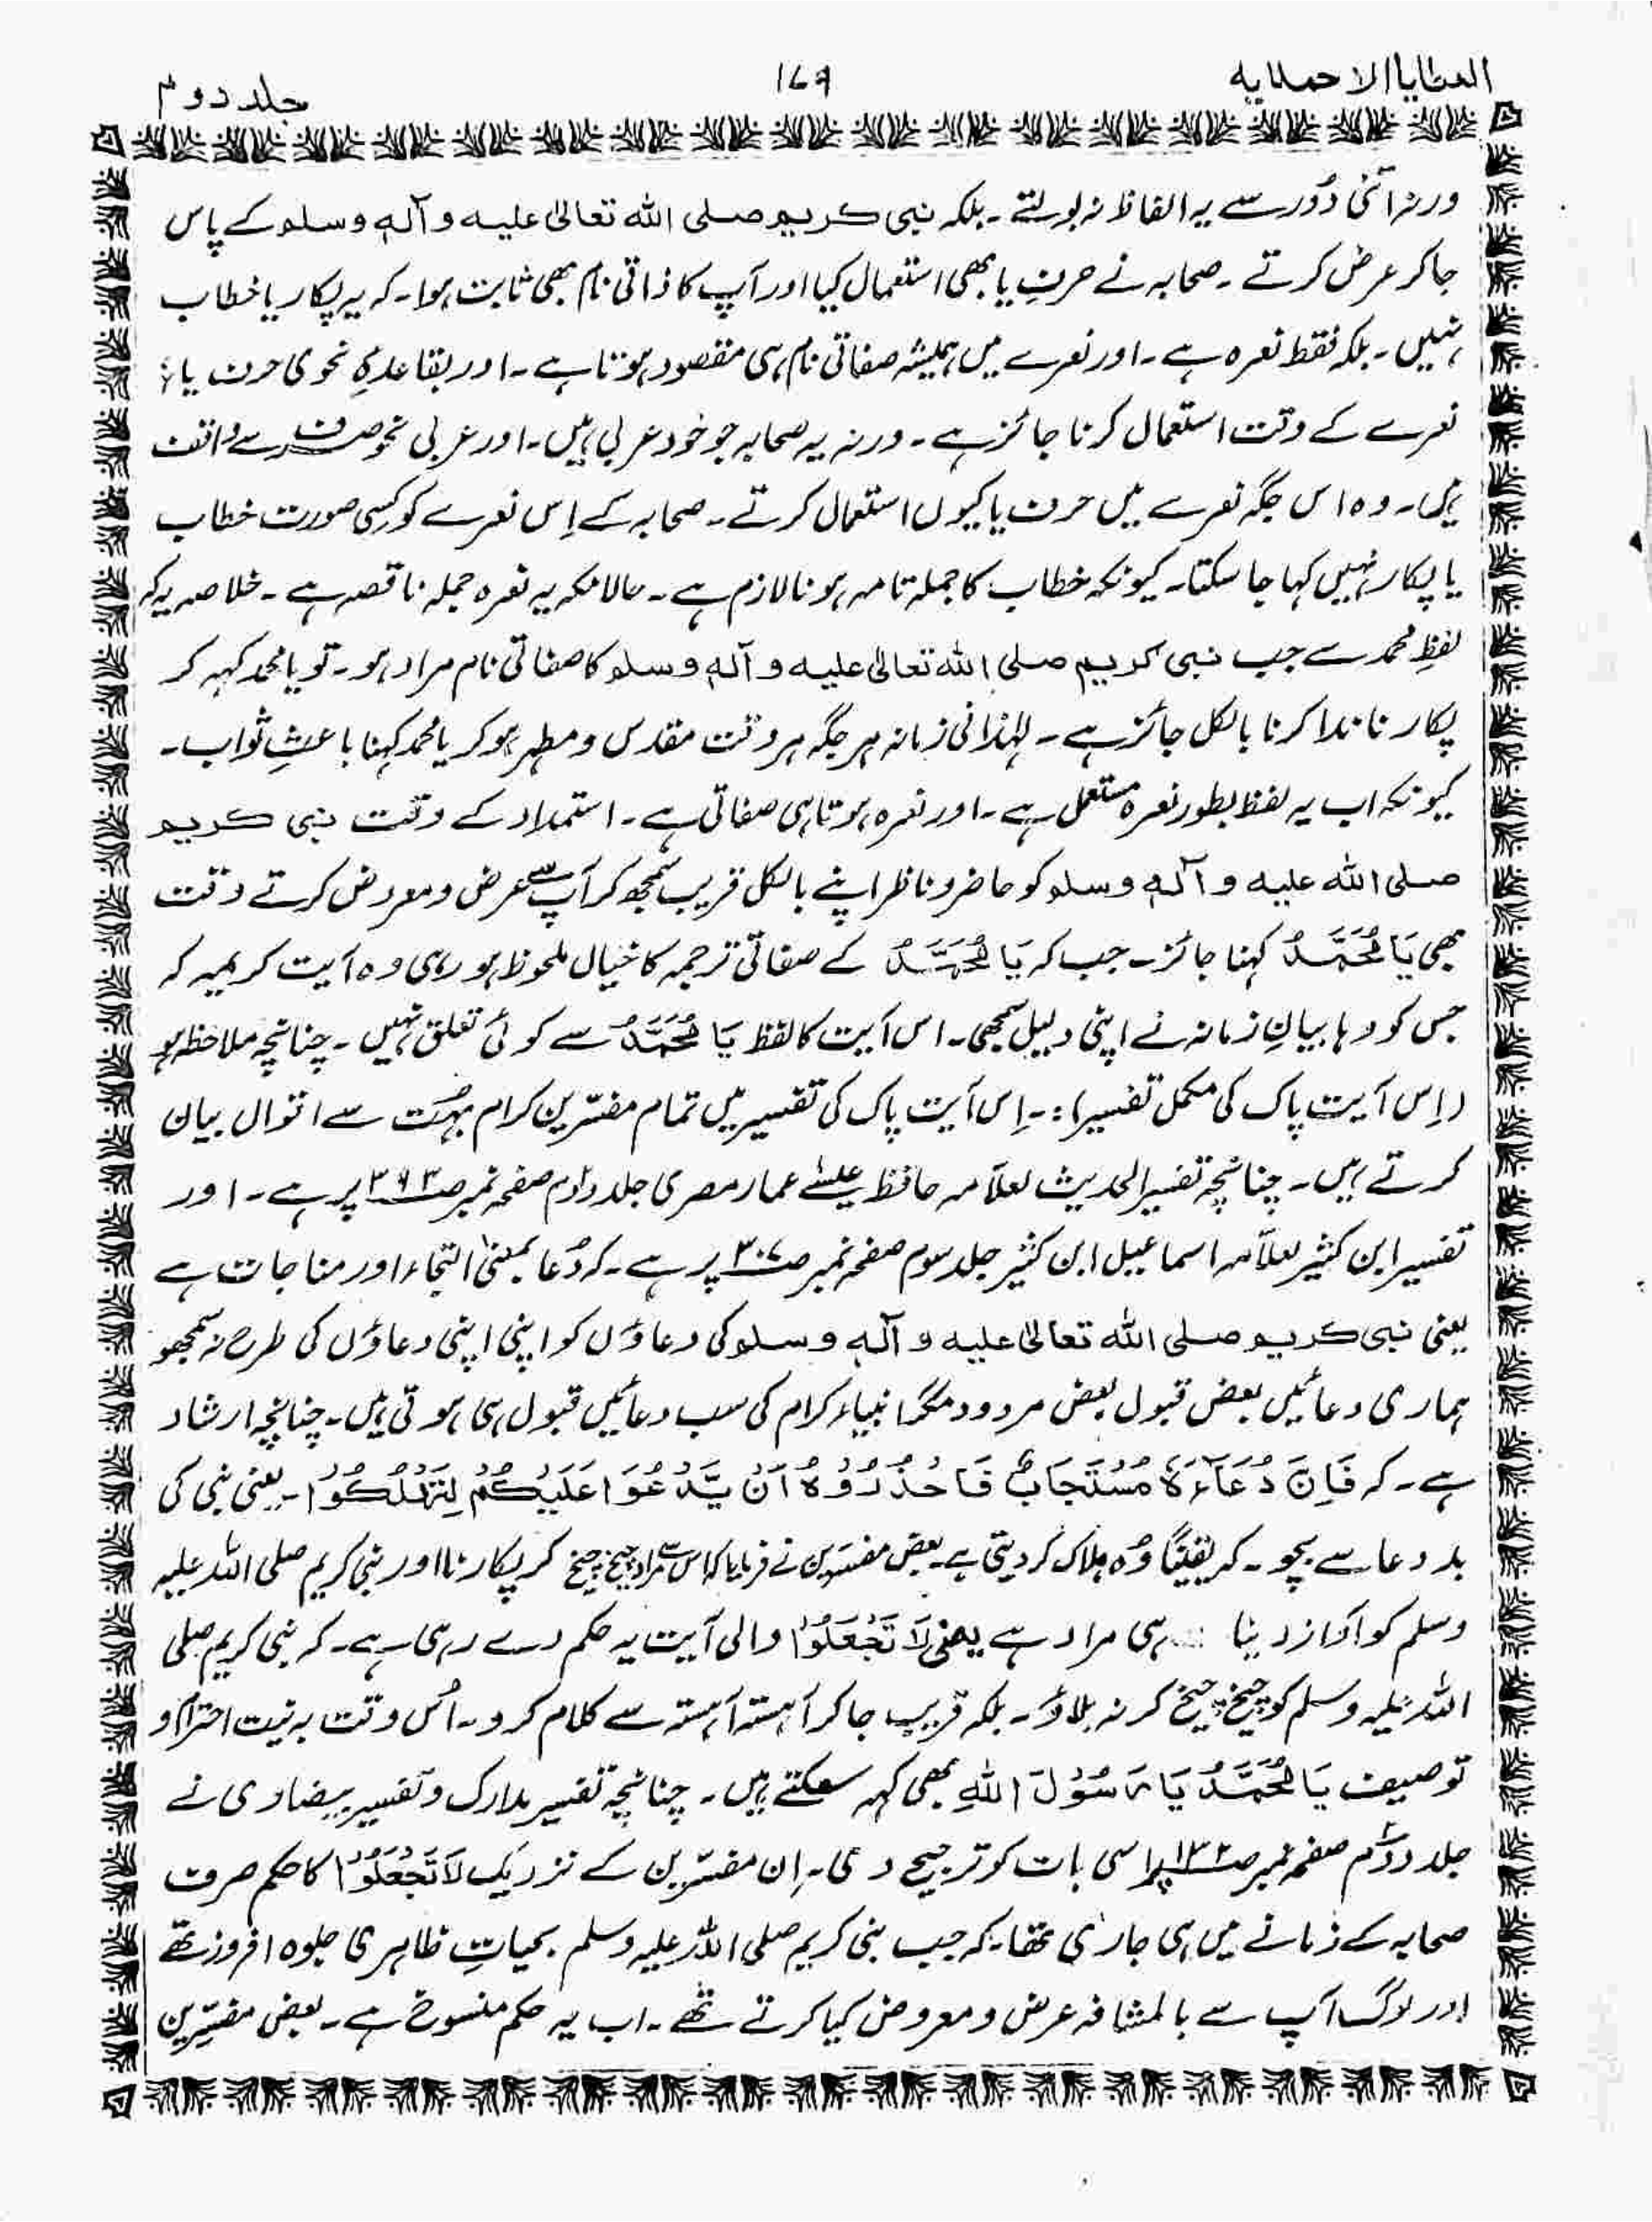 العطایا الاحمدیہ
۱۷۹
جلد دوم
ورنہ اتنی دُور سے یہ الفاظ نہ بولتے ۔ بلکہ نبی کریم صلی اللہ تعالیٰ علیہ و آلہٖ وسلم کے پاس
جا کر عرض کرتے ۔ صحابہ نے حرفِ یا بھی استعمال کیا اور آپ کا ذاتی نام بھی ثابت ہوا ۔ کہ یہ پکار یا خطاب
نہیں ۔ بلکہ فقط نعرہ ہے ۔ اور نعرے میں ہمیشہ صفاتی نام ہی مقصود ہوتا ہے ۔ اور بقاعدہِ نحوی حرف یاء
نعرے کے وقت استعمال کرنا جائز ہے ۔ ورنہ یہ صحابہ جو خود عربی ہیں ۔ اور عربی نحو صرف سے واقف
ہیں ۔ وہ اس جگہ نعرے میں حرف یا کیوں استعمال کرتے ۔ صحابہ کے اِس نعرے کو کسی صورت خطاب
یا پکار نہیں کہا جا سکتا ۔ کیونکہ خطاب کا جملہ تامہ ہونا لازم ہے ۔ حالانکہ یہ نعرہ جملہ ناقصہ ہے ۔ خلاصہ یہ کہ
لفظِ محمد سے جب نبی کریم صلی اللہ تعالیٰ علیہ و آلہٖ وسلم کا صفاتی نام مراد ہو ۔ تو یا محمد کہہ کر
پکارنا ندا کرنا بالکل جائز ہے ۔ لہٰذا فی زمانہ ہر جگہ ہر وقت مقدس و مطہر ہو کر یا محمد کہنا باعثِ ثواب ۔
کیونکہ اب یہ لفظ بطور نعرہ مستعمل ہے ۔ اور نعرہ ہوتا ہی صفاتی ہے ۔ استمداد کے وقت نبی کریم
صلی اللہ علیہ و آلہٖ وسلم کو حاضر و ناظر اپنے بالکل قریب سمجھ کر آپ سے عرض و معروض کرتے وقت
بھی یَا مُحَمَّدُ کہنا جائز ۔ جب کہ یَا مُحَمَّدُ کے صفاتی ترجمہ کا خیال ملحوظ ہو رہی وہ آیت کریمیہ کہ
جس کو وہابیانِ زمانہ نے اپنی دلیل سمجھی ۔ اس آیت کا لفظ یَا مُحَمَّدُ سے کوئی تعلق نہیں ۔ چنانچہ ملاحظہ ہو
(اِس آیت پاک کی مکمل تفسیر) :۔ اِس آیت پاک کی تفسیر میں تمام مفسّرین کرام بہُت سے اقوال بیان
کرتے ہیں ۔ چنانچہ تفسیر الحدیث لعلّامہ حافظ عیسٰے عمار مصری جلد دوم صفحہ نمبر صـ۳۹۳ پر ہے ۔ اور
تفسیر ابن کثیر لعلّامہ اسماعیل ابن کثیر جلد سوم صفحہ نمبر صـ۳۰۷ پر ہے ۔ کہ دُعا بمعنیٰ التجاء اور مناجات ہے
یعنی نبی کریم صلی اللہ تعالیٰ علیہ و آلہٖ وسلم کی دعاؤں کو اپنی اپنی دعاؤں کی طرح نہ سمجھو
ہماری دعائیں بعض قبول بعض مردود مگر انبیاء کرام کی سب دعائیں قبول ہی ہوتی ہیں ۔ چنانچہ ارشاد
ہے ۔ کہ فَاِنَّ دُعَآءَہٗ مُسْتَجَابٌ فَاحْذَرُوْہُ اَنْ یَّدْعُوَا عَلَیْکُمْ لِتَہْلُکُوْا ۔ یعنی نبی کی
بد دعا سے بچو ۔ کہ یقیناً وُہ ہلاک کر دیتی ہے ۔ بعض مفسّرین نے فرمایا کہ اس سے مراد چیخ چیخ کر پکارنا اور نبی کریم صلی اللہ علیہ
وسلم کو آواز دینا ہی مراد ہے یعنی لَا تَجْعَلُوْا والی آیت یہ حکم دے رہی ہے ۔ کہ نبی کریم صلی
اللہ علیہ وسلم کو چیخ چیخ کر نہ بلاؤ ۔ بلکہ قریب جا کر آہستہ آہستہ سے کلام کرو ۔ اُس وقت بہ نیت احترام و
توصیف یَا مُحَمَّدُ یَا رَسُوْلَ اللہِ بھی کہہ سکتے ہیں ۔ چنانچہ تفسیر مدارک و تفسیر بیضاوی نے
جلد دوم صفحہ نمبر صـ۱۳۲ پر اسی بات کو ترجیح دی ۔ اِن مفسّرین کے نزدیک لَا تَجْعَلُوْا کا حکم صرف
صحابہ کے زمانے میں ہی جاری تھا ۔ کہ جب نبی کریم صلی اللہ علیہ وسلم بحیاتِ ظاہری جلوہ افروز تھے
اور لوگ آپ سے بالمشافہ عرض و معروض کیا کرتے تھے ۔ اب یہ حکم منسوخ ہے ۔ بعض مفسّرین